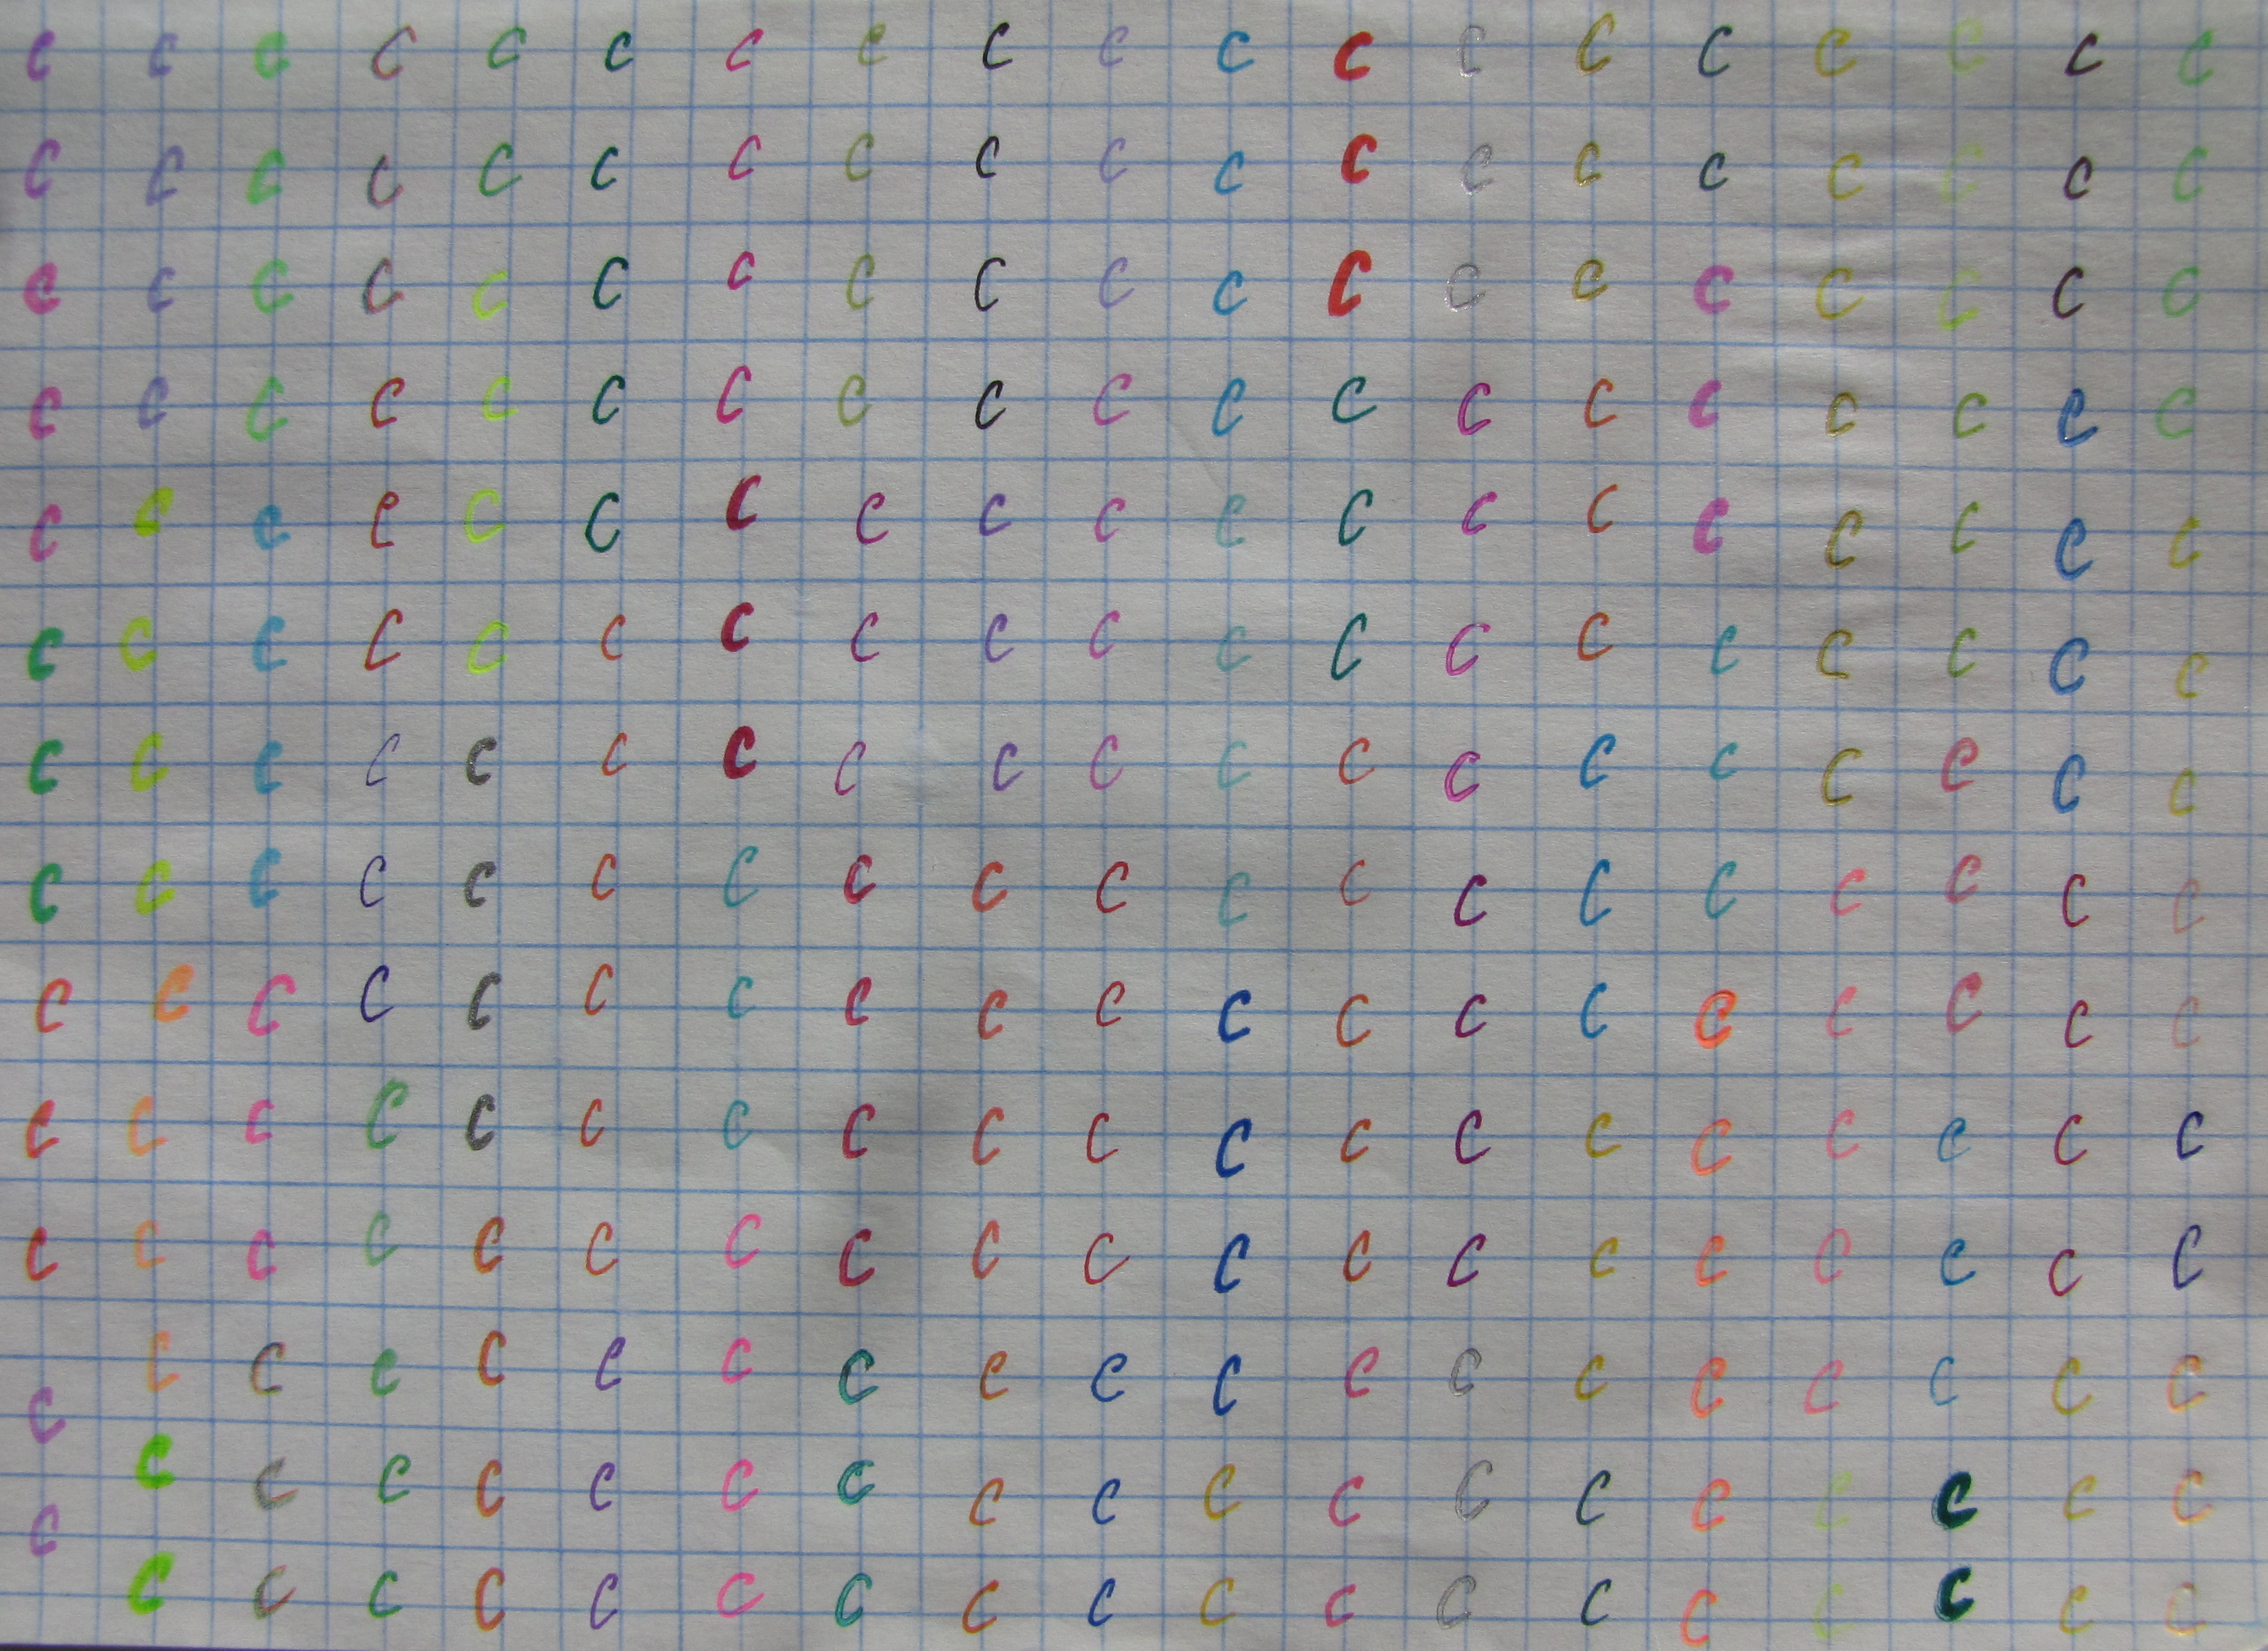 c c c c c c c c c c c c c c c c c c c
c c c c c c c c c c c c c c c c c c c
c c c c c c c c c c c c c c c c c c c
c c c c c c c c c c c c c c c c c c c
c c c c c c c c c c c c c c c c c c c
c c c c c c c c c c c c c c c c c c c
c c c c c c c c c c c c c c c c c c c
c c c c c c c c c c c c c c c c c c c
c c c c c c c c c c c c c c c c c c c
c c c c c c c c c c c c c c c c c c c
c c c c c c c c c c c c c c c c c c c
c c c c c c c c c c c c c c c c c c c
c c c c c c c c c c c c c c c c c c c
c c c c c c c c c c c c c c c c c c